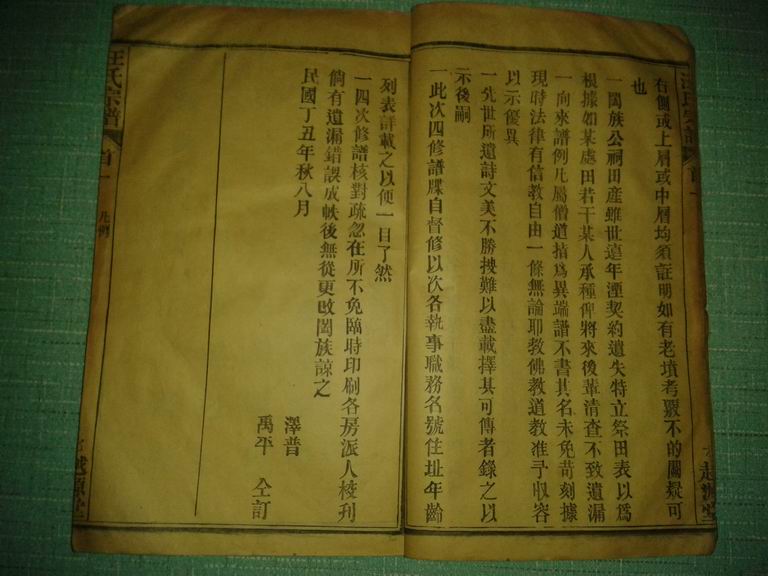 右側或上層或中層均須証明如有老墳考覈不的闕疑可
也
一闔族公祠田産雖世遠年湮契約遺失特立祭田表以爲
根據如某處田若干某人承種俾將來後輩清查不致遺漏
一向來譜例凡屬僧道指爲異端譜不書其名未免苛刻據
現時法律有信教自由一條無論耶教佛教道教准予収容
以示優異
一先世所遺詩文美不勝搜難以盡載擇其可傳者錄之以
示後嗣
一此次四修譜牒自督修以次各執事職務名號住址年齡
列表詳載之以便一目了然
一四次修譜核對疏忽在所不免臨時印刷各房派人校刋
倘有遺漏錯誤成帙後無從更改闔族諒之
民國丁丑年秋八月
澤普
禹平 仝訂
汪氏宗譜 首一 凡例